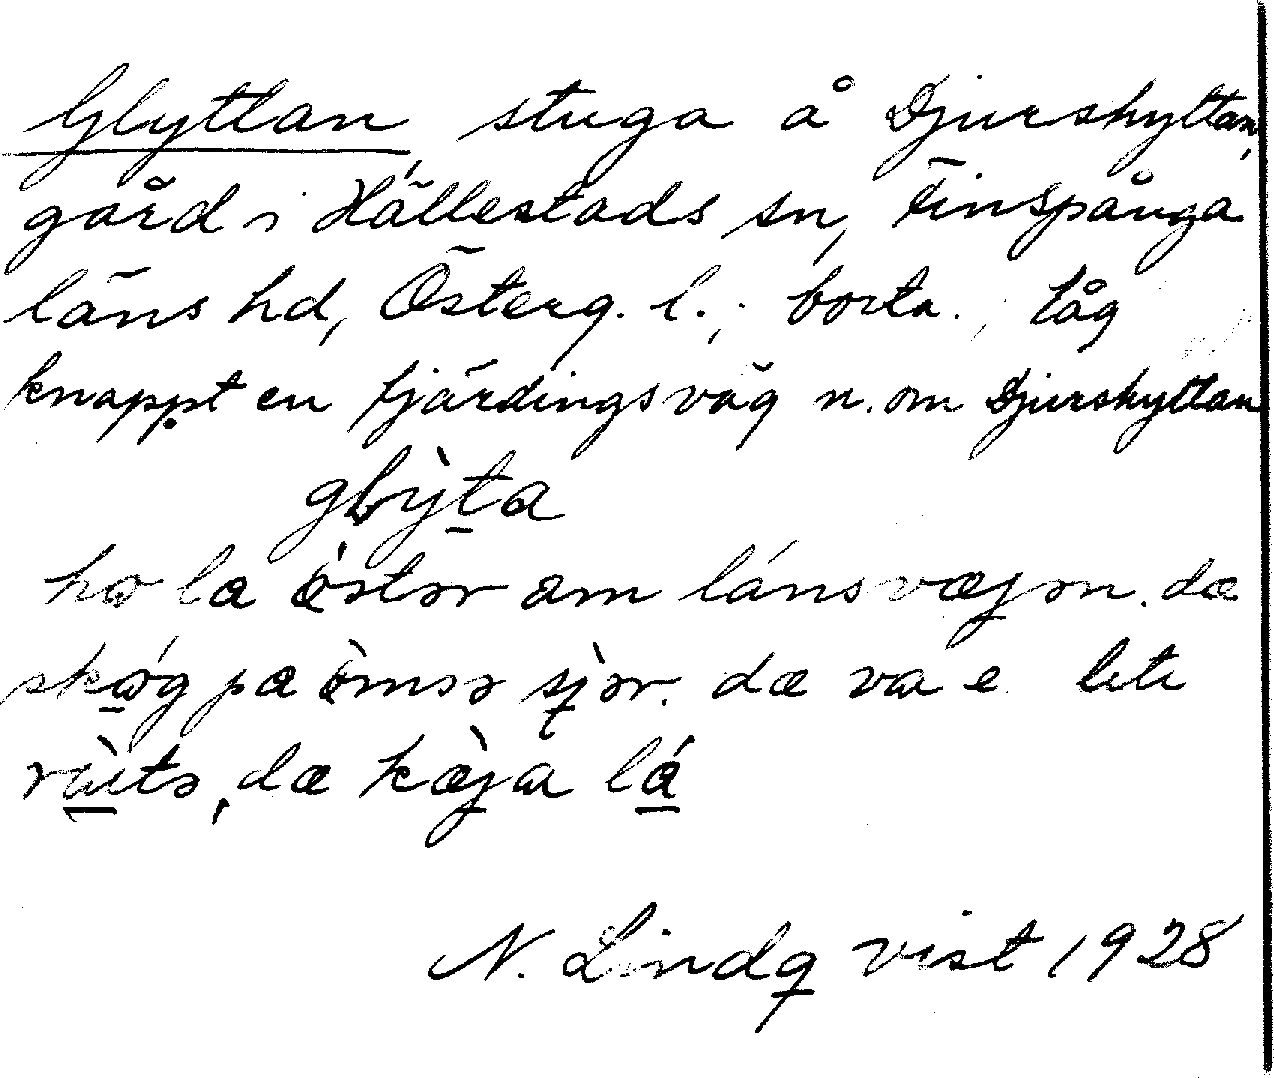 Glyttlan, stuga å Djurshyttan,
gård i Hällestads sn, Finspånga
läns hd, Österg. l.; borta. låg
knappt en fjärdingsväg n. om Djurshyttan
glỳta
hɷ la östər am lánsvæjən. dæ
skɷ́g pa òmsə sjòr. dæ va e lite
ràits, dæ kæ̀ja lá
N. Lindqvist 1928